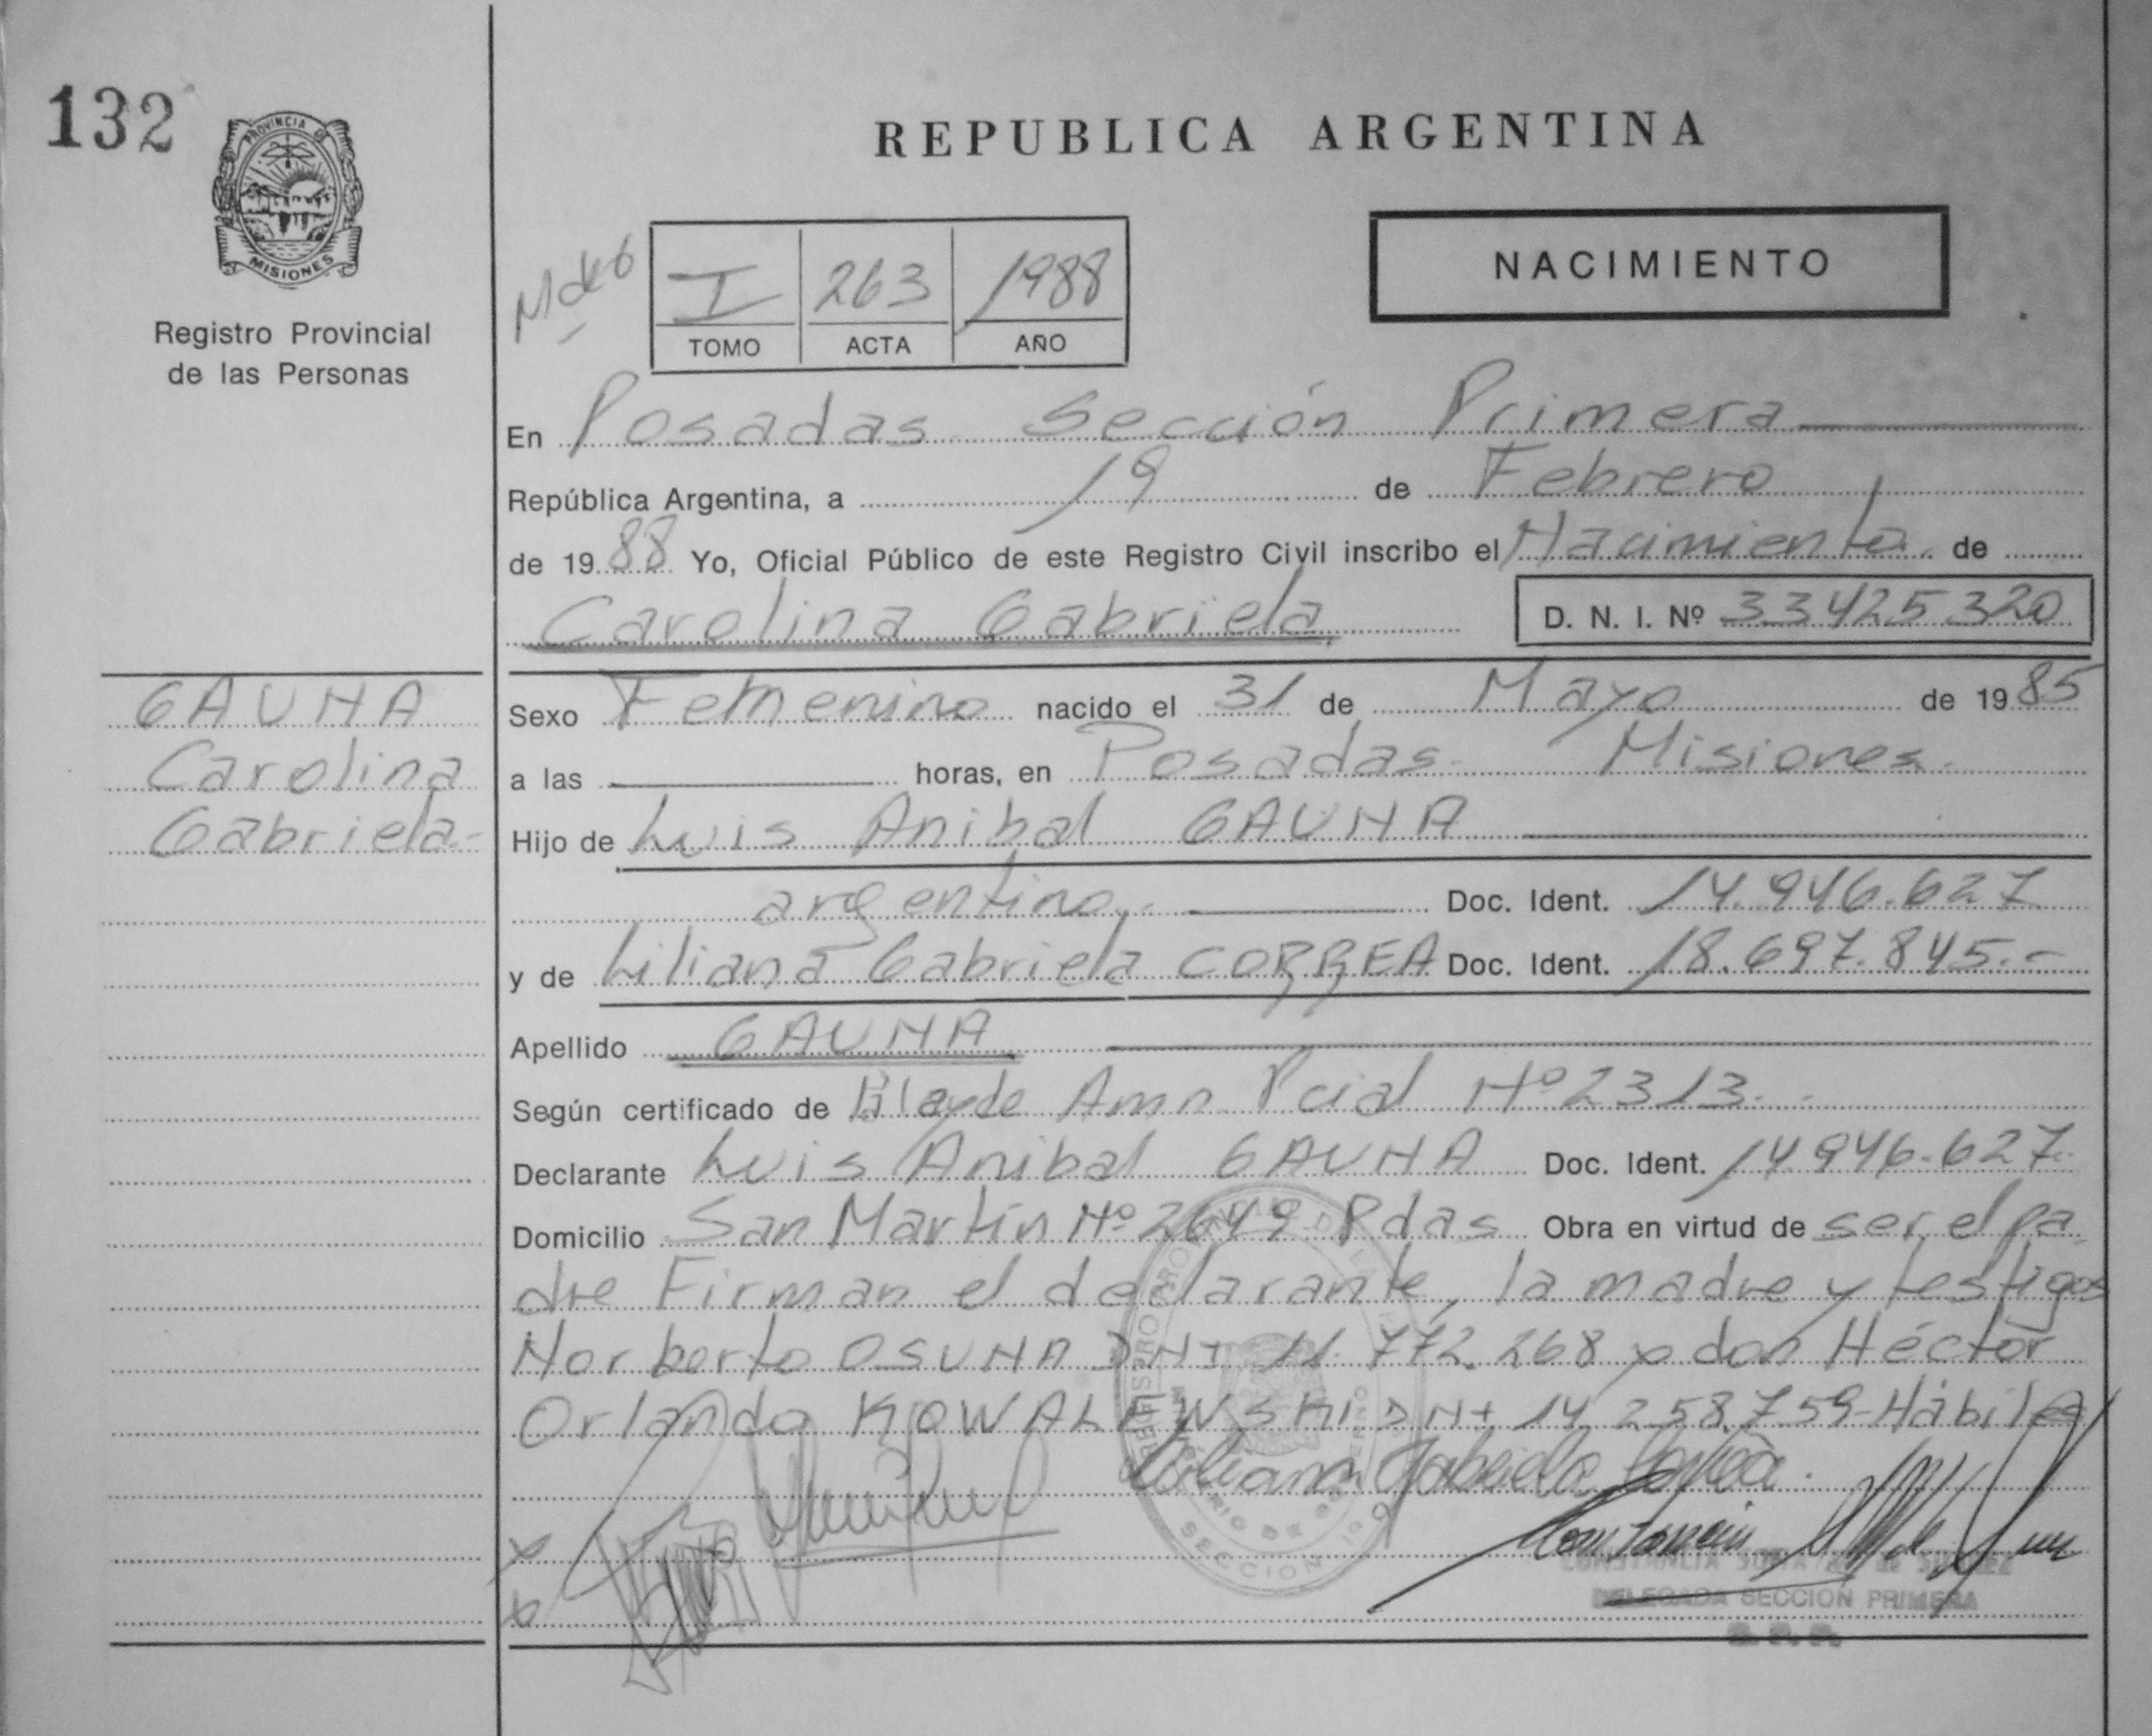 132
PROVINCIA DE
MISIONES
Registro Provincial
de las Personas
REPUBLICA ARGENTINA
NACIMIENTO
I 263 1988
TOMO ACTA AÑO
En Posadas Sección Primera
República Argentina, a 19 de Febrero
de 1988 Yo, Oficial Público de este Registro Civil inscribo el Nacimiento de
Carolina Gabriela D. N. I. Nº 33425320
GAUNA
Carolina
Gabriela-
Sexo Femenino nacido el 31 de Mayo de 1985
a las horas, en Posadas Misiones
Hijo de Luis Anibal GAUNA
argentino Doc. Ident. 14.946.627
y de Liliana Gabriela CORREA Doc. Ident. 18.697.845.-
Apellido GAUNA
Según certificado de Pcial Nº 2313
Declarante Luis Anibal GAUNA Doc. Ident. 14946.627
Domicilio San Martín Nº 2649 Pdas Obra en virtud de ser el pa
dre Firman el declarante, la madre y testigos
Norberto OSUNA DNI 11.772.268 y don Héctor
Orlando KOWALEWSKI DNI 14.258.759-Hábiles
Liliana Gabriela Correa
SECCION
DELEGADA SECCION PRIMERA